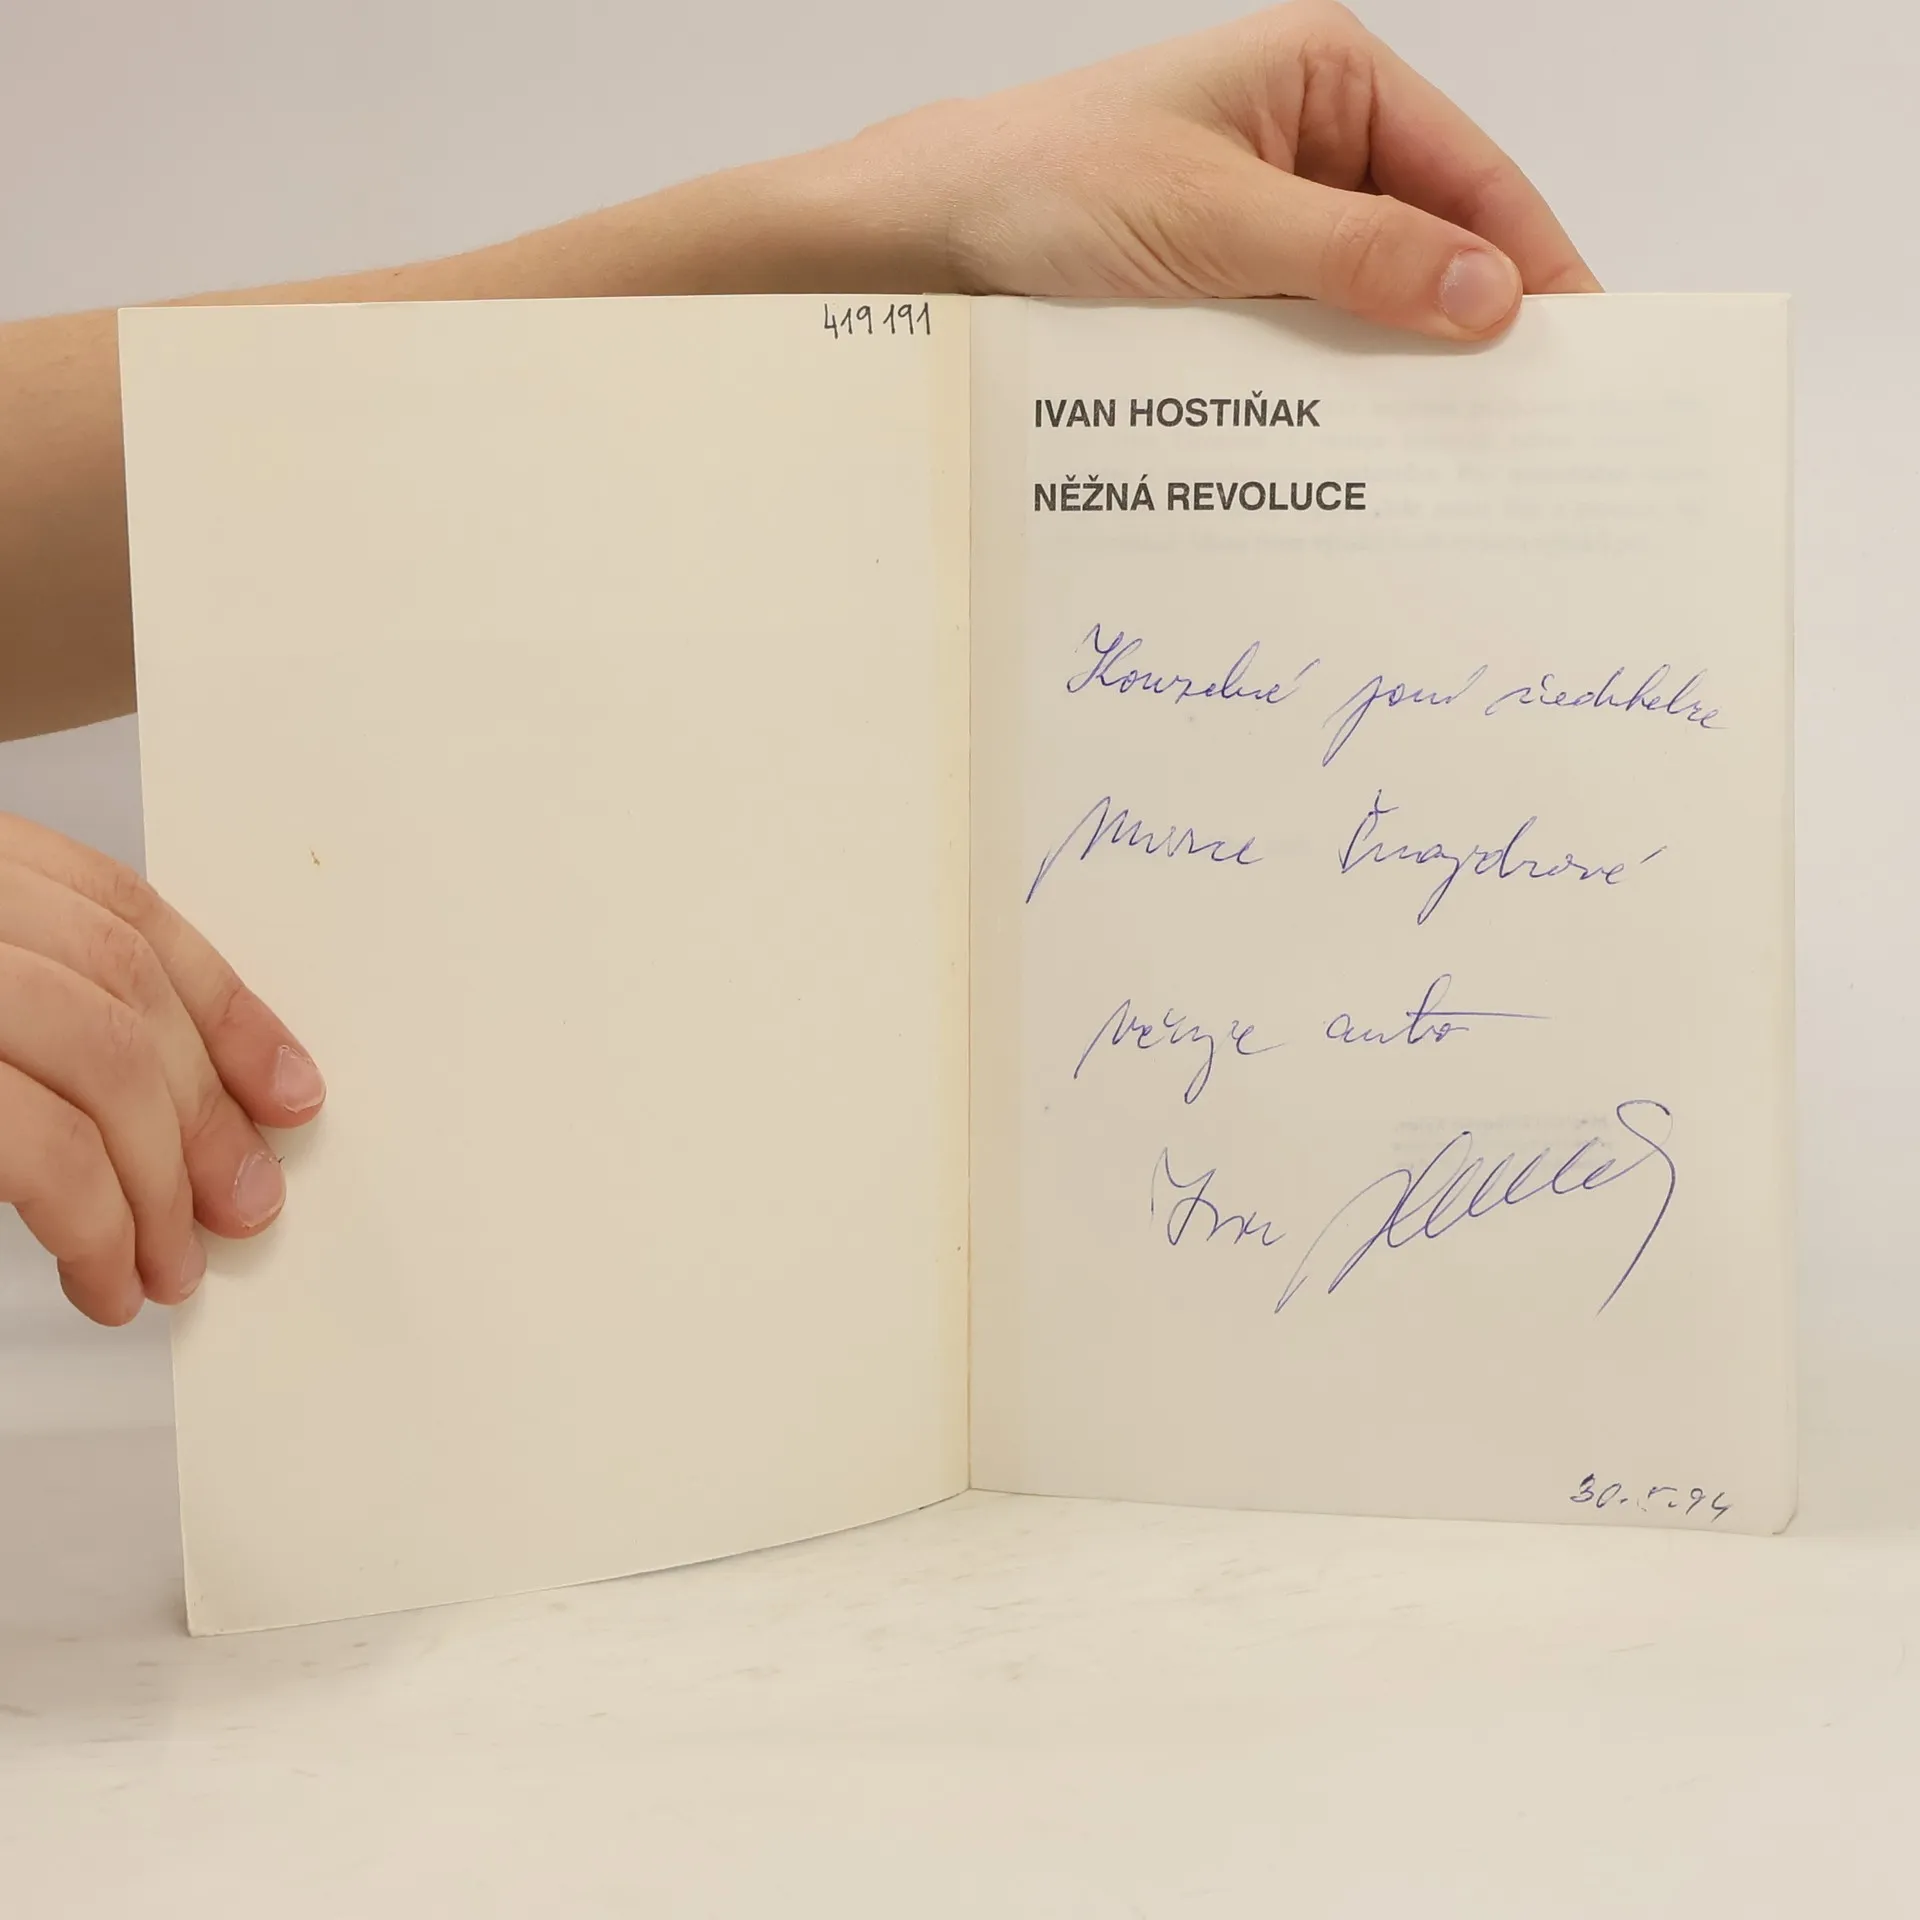 419 191
IVAN HOSTIŇAK
NĚŽNÁ REVOLUCE
Kouzelné paní ředitelce
Šmajdrové
věnuje autor
Ivan
30.5.94